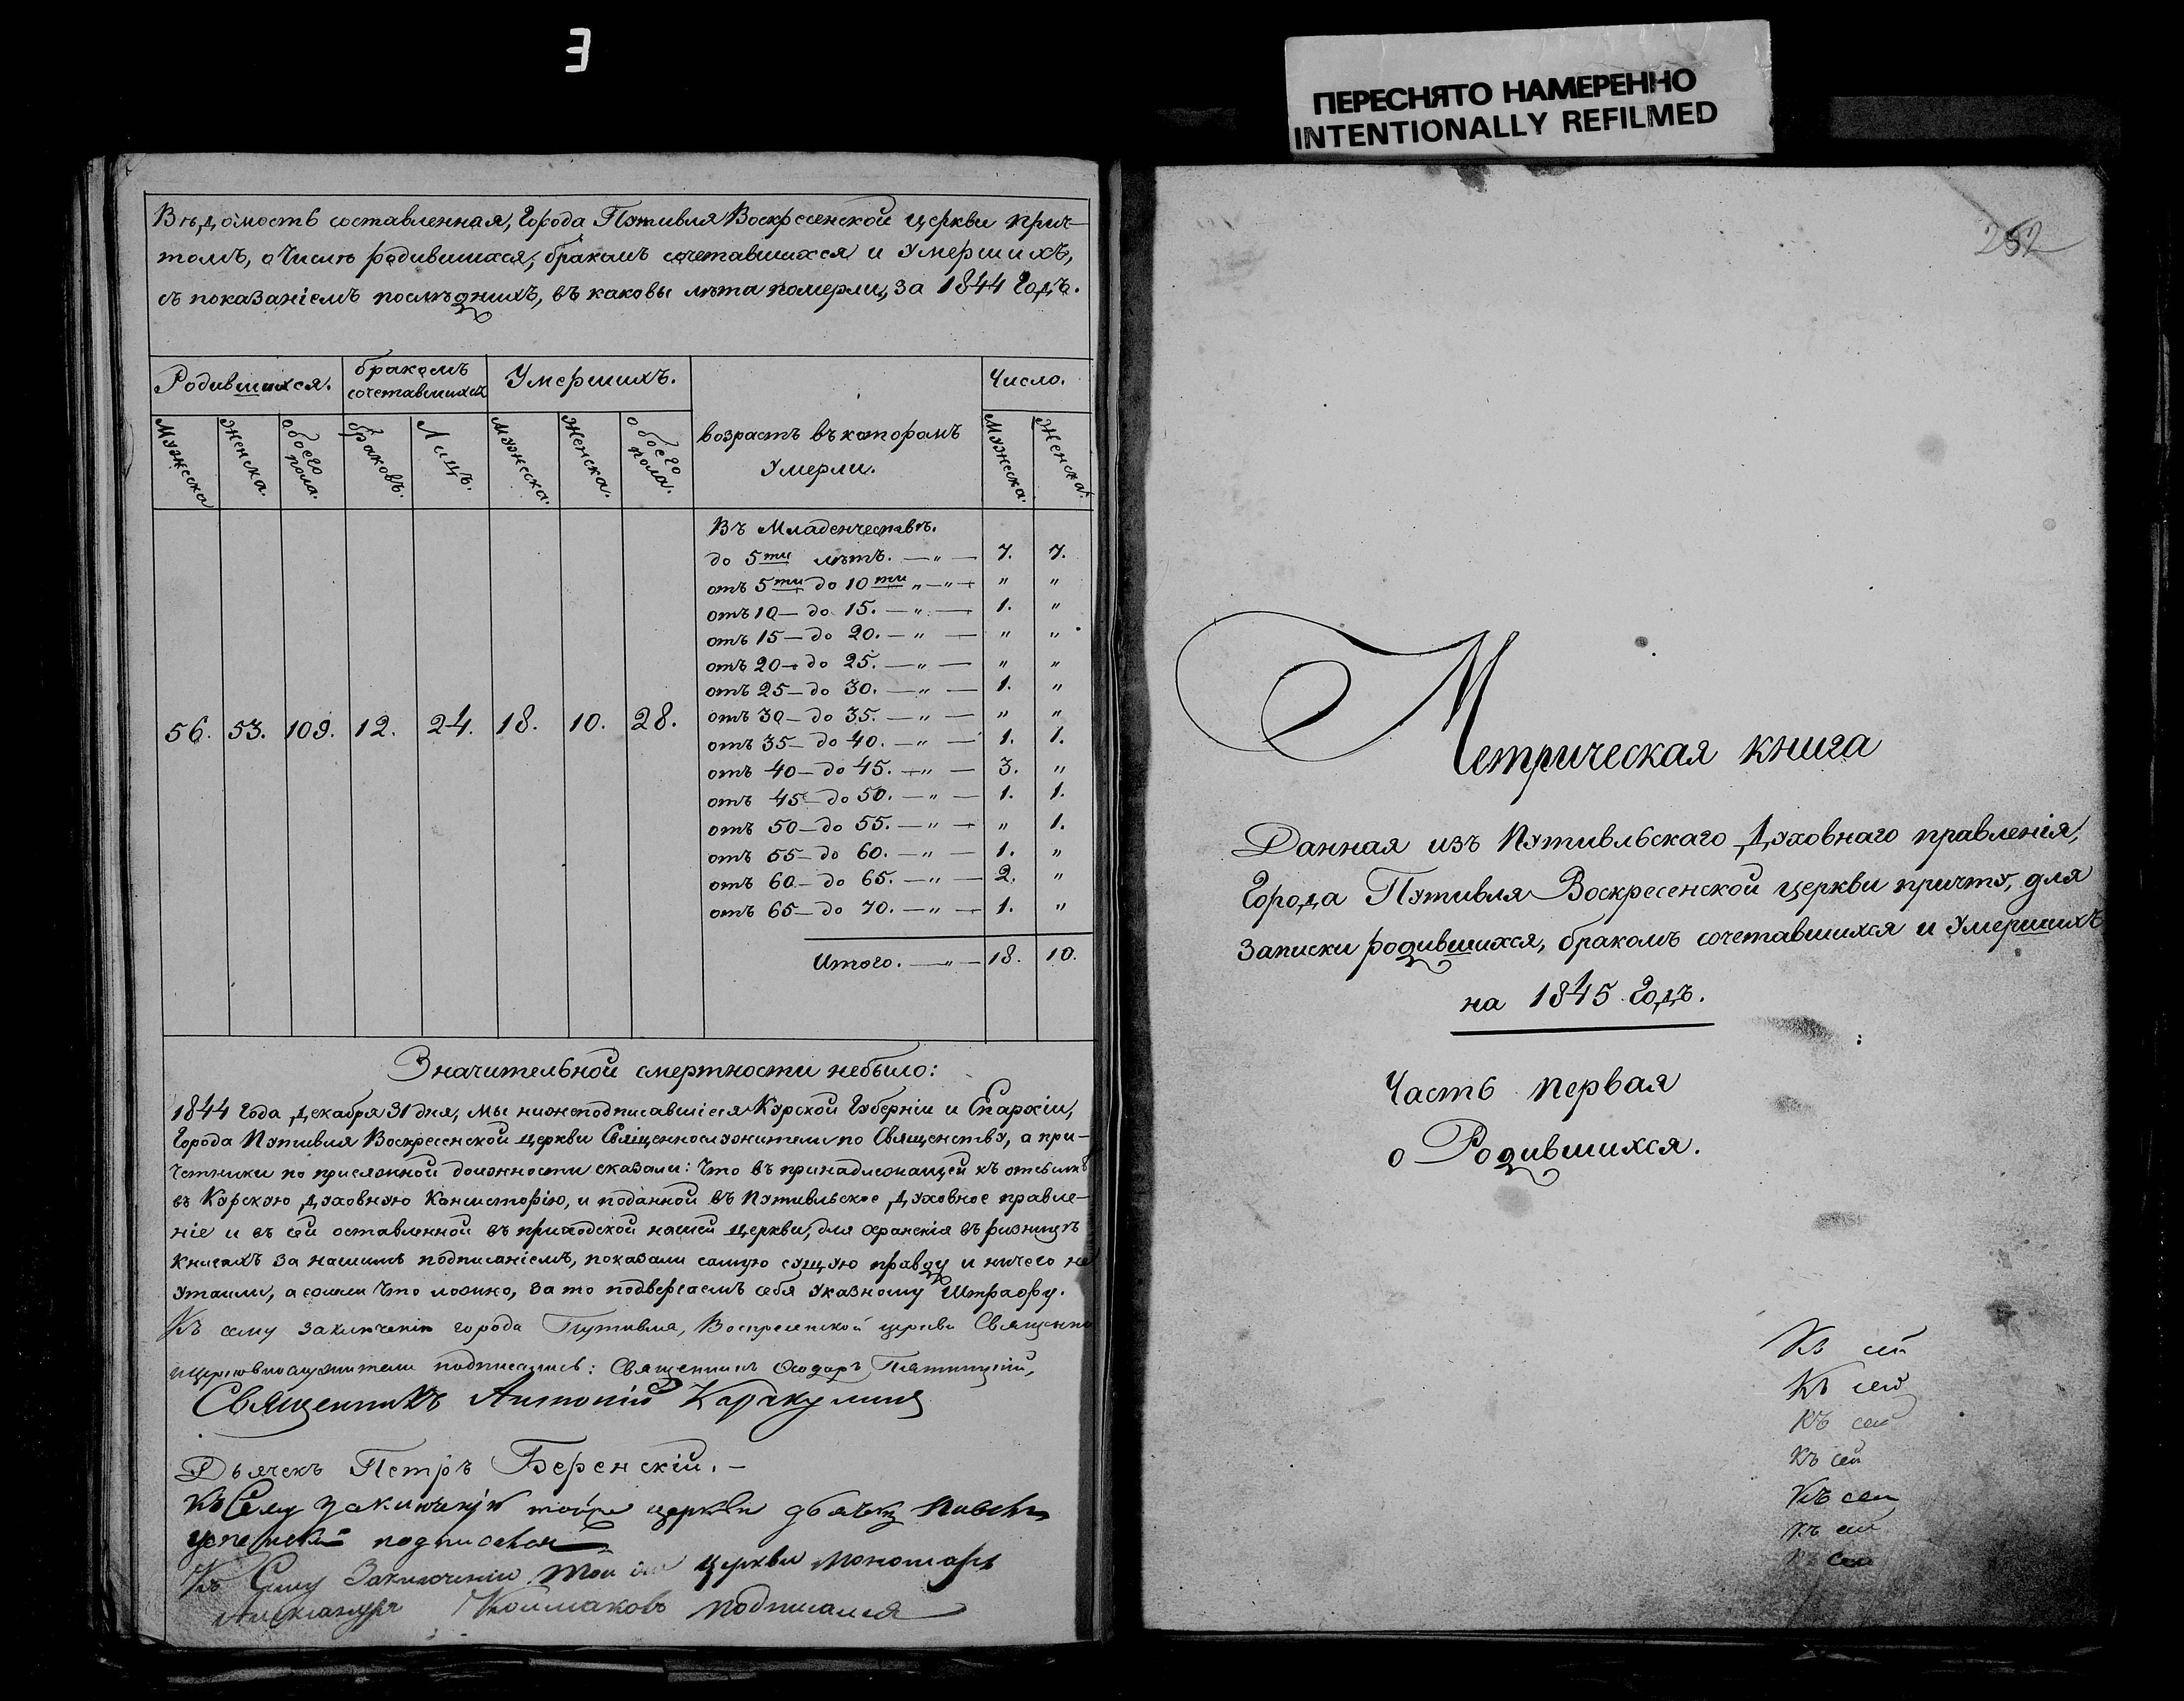 Э
ПЕРЕСНЯТО НАМЕРЕННО
INTENTIONALLY REFILMED
Вѣдомость составленная, Города Путивля Воскресенской церкви прич-
томъ, о Числѣ родившихся, бракомъ сочетавшихся и Умершихъ,
съ показаніемъ послѣднихъ, въ каковы лѣта померли, за 1844 Годъ.
Родившихся. бракомъ сочетавшихся Умершихъ. возрастъ въ которомъ Умерли. Число.
Мужеска Женска. обоего пола. браковъ. Лицъ. Мужеска. Женска. обоего пола. Мужеска. Женска.
56. 53. 109. 12. 24. 18. 10. 28.
Въ Младенчествѣ.
до 5ти лѣтъ. — „ — 7. 7.
отъ 5ти до 10ти „ — „ — „ „
отъ 10 — до 15. — „ — 1. „
отъ 15 — до 20. — „ — „ „
отъ 20 — до 25. — „ — „ „
отъ 25 — до 30. — „ — 1. „
отъ 30 — до 35. — „ — „ „
отъ 35 — до 40. — „ — 1. 1.
отъ 40 — до 45. — „ — 3. „
отъ 45 — до 50. — „ — 1. 1.
отъ 50 — до 55. — „ — „ 1.
отъ 55 — до 60. — „ — 1. „
отъ 60 — до 65. — „ — 2. „
отъ 65 — до 70. — „ — 1. „
Итого. — „ — 18. 10.
Значительной смертности небыло:
1844 Года Декабря 31 дня, Мы нижеподписавшіеся Курской Губерніи и Епархіи,
Города Путивля Воскресенской церкви Священнослужители по Священству, а при-
четники по присяжной должности сказали: Что въ принадлежащей къ отсылкѣ
въ Курскую Духовную Консисторію, и поданной въ Путивльское Духовное правле-
ніе и въ сей оставленной въ приходской нашей церкви, для храненія въ ризницѣ
книгахъ за нашимъ подписаніемъ, показали самую сущую правду и ничего не
утаили, а ежели Что ложно, за то подвергаемъ себя указному Штрафу.
Къ сему заключенію города Путивля, Воскресенской церкви Священно
и церковнослужители подписались: Священникъ Ѳеодоръ Пятницкій,
Священникъ Антоній Каракулинъ
Дьячекъ Петръ Беренскій. –
Къ Сему заключенію тойже церкви дьячекъ Павелъ
Успенскій подписался
Къ Сему Заключенію той же церкви Пономарь
Александръ Колмаковъ подписался
252
Метрическая книга
Данная изъ Путивльскаго Духовнаго правленія,
Города Путивля Воскресенской церкви причту, для
записки родившихся, бракомъ сочетавшихся и Умершихъ
на 1845 Годъ.
Часть первая
о Родившихся.
Къ сей
Къ сей
Къ сей
Къ сей
Къ сей
Къ сей
Къ сей